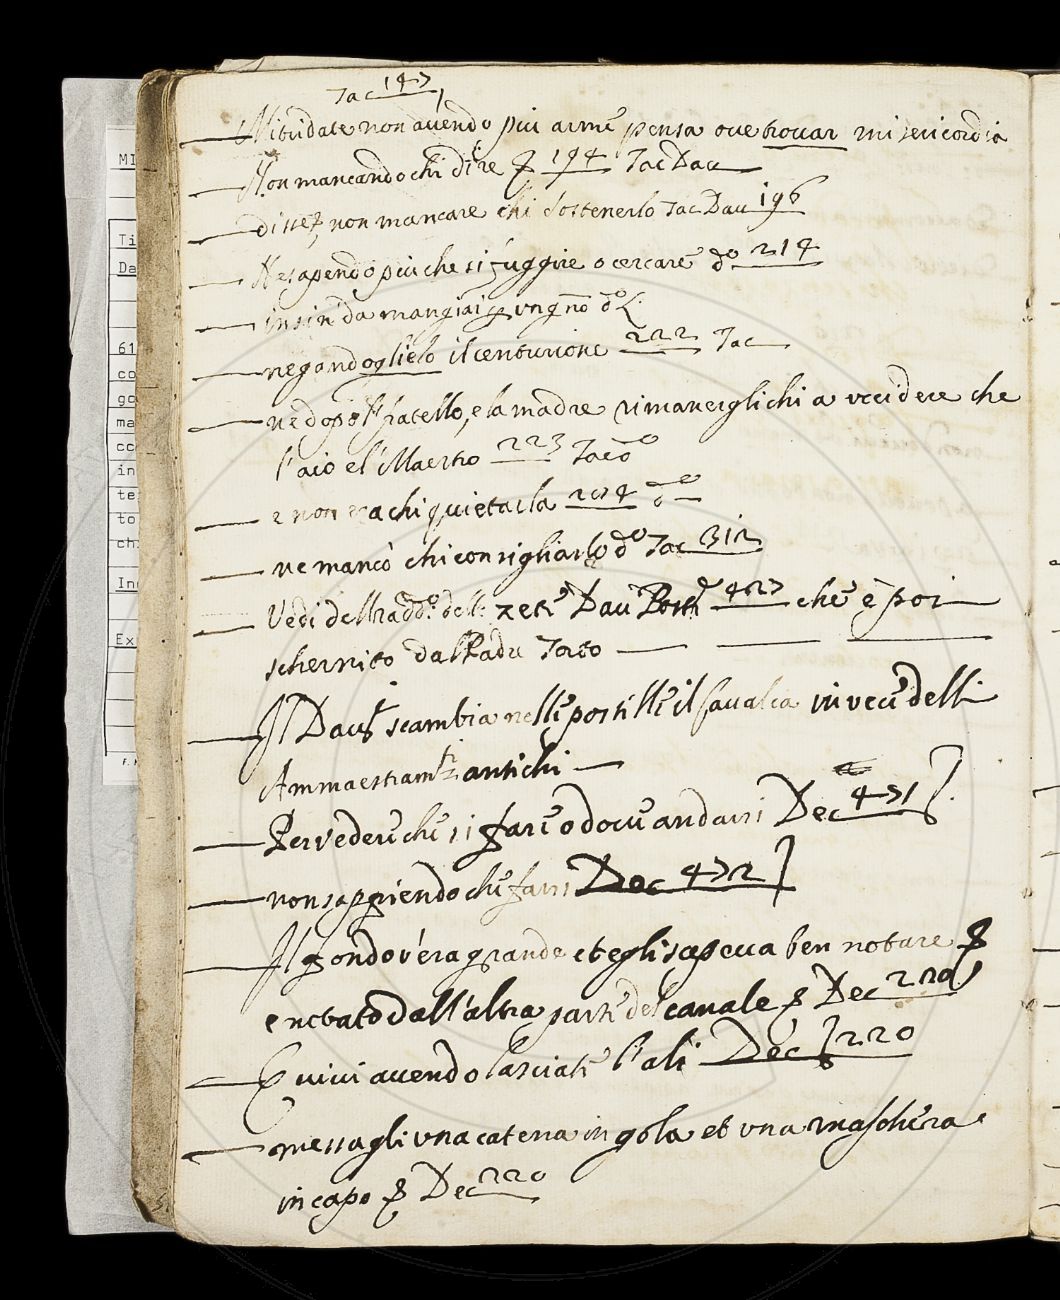 Tac 147
Mitridate non avendo piu arme pensa ove trovar misericordia
Non mancando chi dire 194 Tac Dav
non mancare chi sostenerlo Tac Dav 196
Ne sapendo piu che si fuggire o cercare do 214
mangiai
negandoglielo il centurione 222 Tac
ne dopo il fratello, e la madre rimanergli chi a uccidere che
l'aio e l'Maestro 223 Tac
e non era chi quietarla
ne mancò chi consigliarlo do Tac 312
Vedi Dav Post 427 che è poi
schernito dal Tacto
Il Dav scambia nelle postille il Cavalca in vece delli
Ammaestramti antichi
Per vedere che si fare o dove andarsi Dec 471
non sappiendo che farsi Dec 472
Il fondo v'era grande et egli sapeva ben notare
e notato dall'altra parte del canale Dec 220
Quivi avendo lasciate l'ali Dec 220
messagli una catena in gola et una maschera
in capo Dec 220
MI
Ti
Da
61
co
go
ma
cc
in
te
to
ch
In
Ex